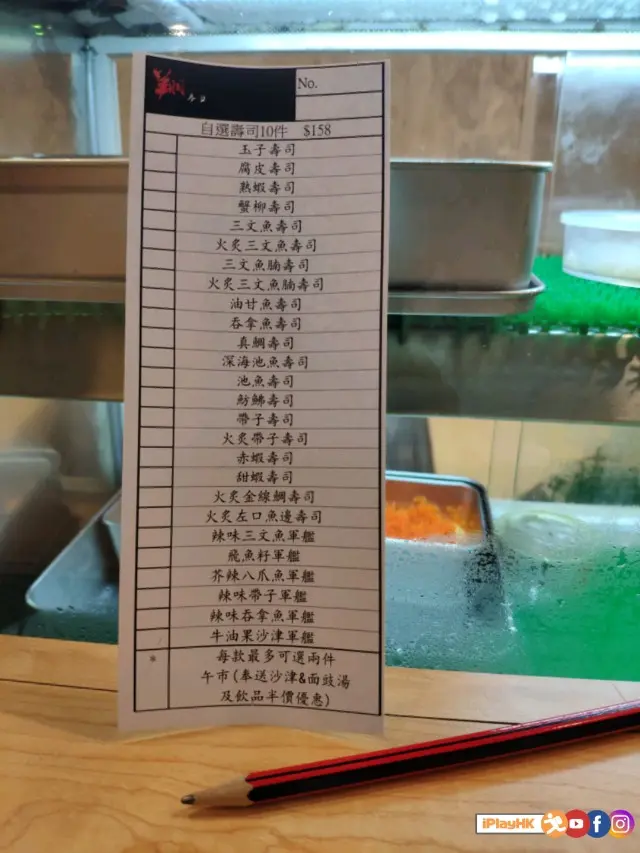 No.
自選壽司10件 $158
玉子壽司
腐皮壽司
熟蝦壽司
蟹柳壽司
三文魚壽司
火炙三文魚壽司
三文魚腩壽司
火炙三文魚腩壽司
油甘魚壽司
吞拿魚壽司
真鯛壽司
深海池魚壽司
池魚壽司
魴鮄壽司
帶子壽司
火炙帶子壽司
赤蝦壽司
甜蝦壽司
火炙金線鯛壽司
火炙左口魚邊壽司
辣味三文魚軍艦
飛魚籽軍艦
芥辣八爪魚軍艦
辣味帶子軍艦
辣味吞拿魚軍艦
牛油果沙津軍艦
每款最多可選兩件
午市(奉送沙津&面豉湯
及飲品半價優惠)
iPlayHK